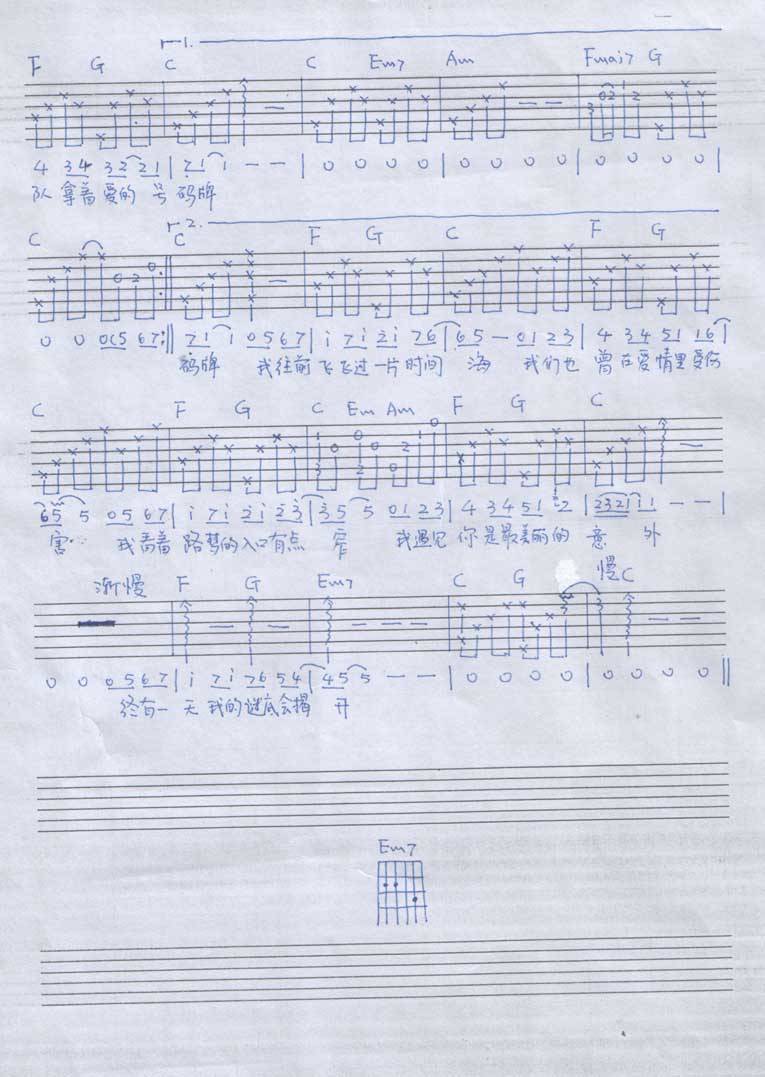 1.
F G C C Em7 Am Fmaj7 G
4 34 32 21 | 7 1 1 - - | 0 0 0 0 | 0 0 0 0 | 0 0 0 0 |
队 拿着 爱的 号 码牌
2.
C C F G C F G
0 0 05 67 :|| 7 1 1 05 67 | i 7i 2i 76 | 65 - 01 23 | 4 34 51 16 |
码牌 我往前飞 飞过一片时间 海 我们也 曾在爱情里受伤
C F G C Em Am F G C
65 5 05 67 | i 7i 2i 23 | 35 5 01 23 | 4 34 51 2 | 2321 1 1 - - |
害 我看着 路梦的入口有点 窄 我遇见 你是最美丽的 意 外
渐慢 F G Em7 C G 慢 C
0 0 05 67 | i 7i 76 54 | 45 5 - - | 0 0 0 0 | 0 0 0 0 ||
终有一 天 我的谜底会揭 开
Em7